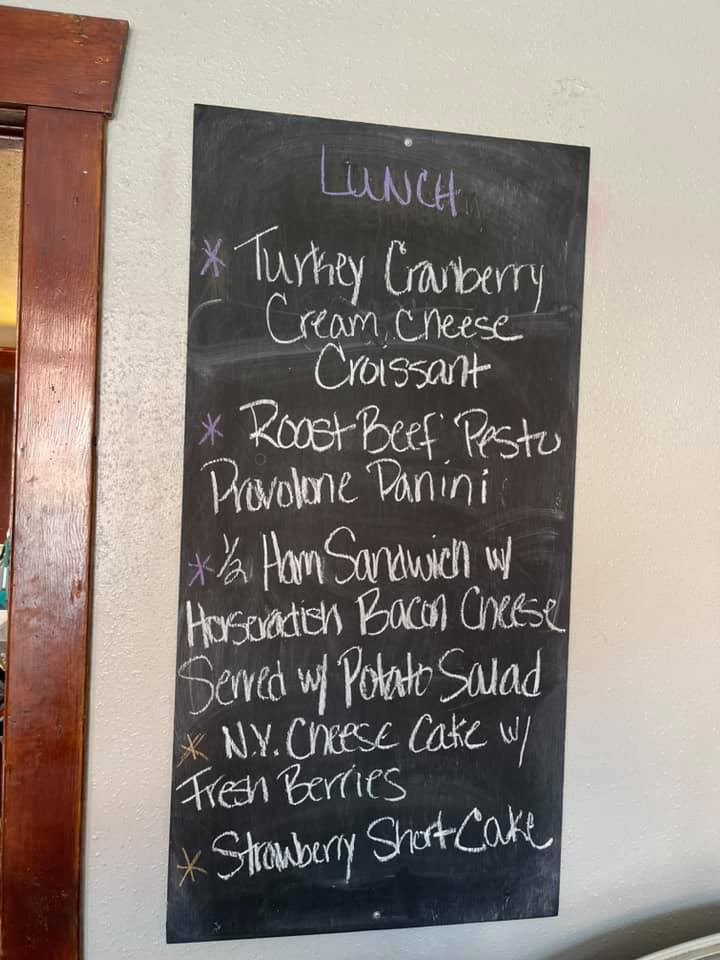 LUNCH
* Turkey Cranberry
Cream Cheese
Croissant
* Roast Beef Pesto
Provolone Panini
* 1/2 Ham Sandwich w/
Horseradish Bacon Cheese
Served w/ Potato Salad
* N.Y. Cheese Cake w/
Fresh Berries
* Strawberry Short Cake